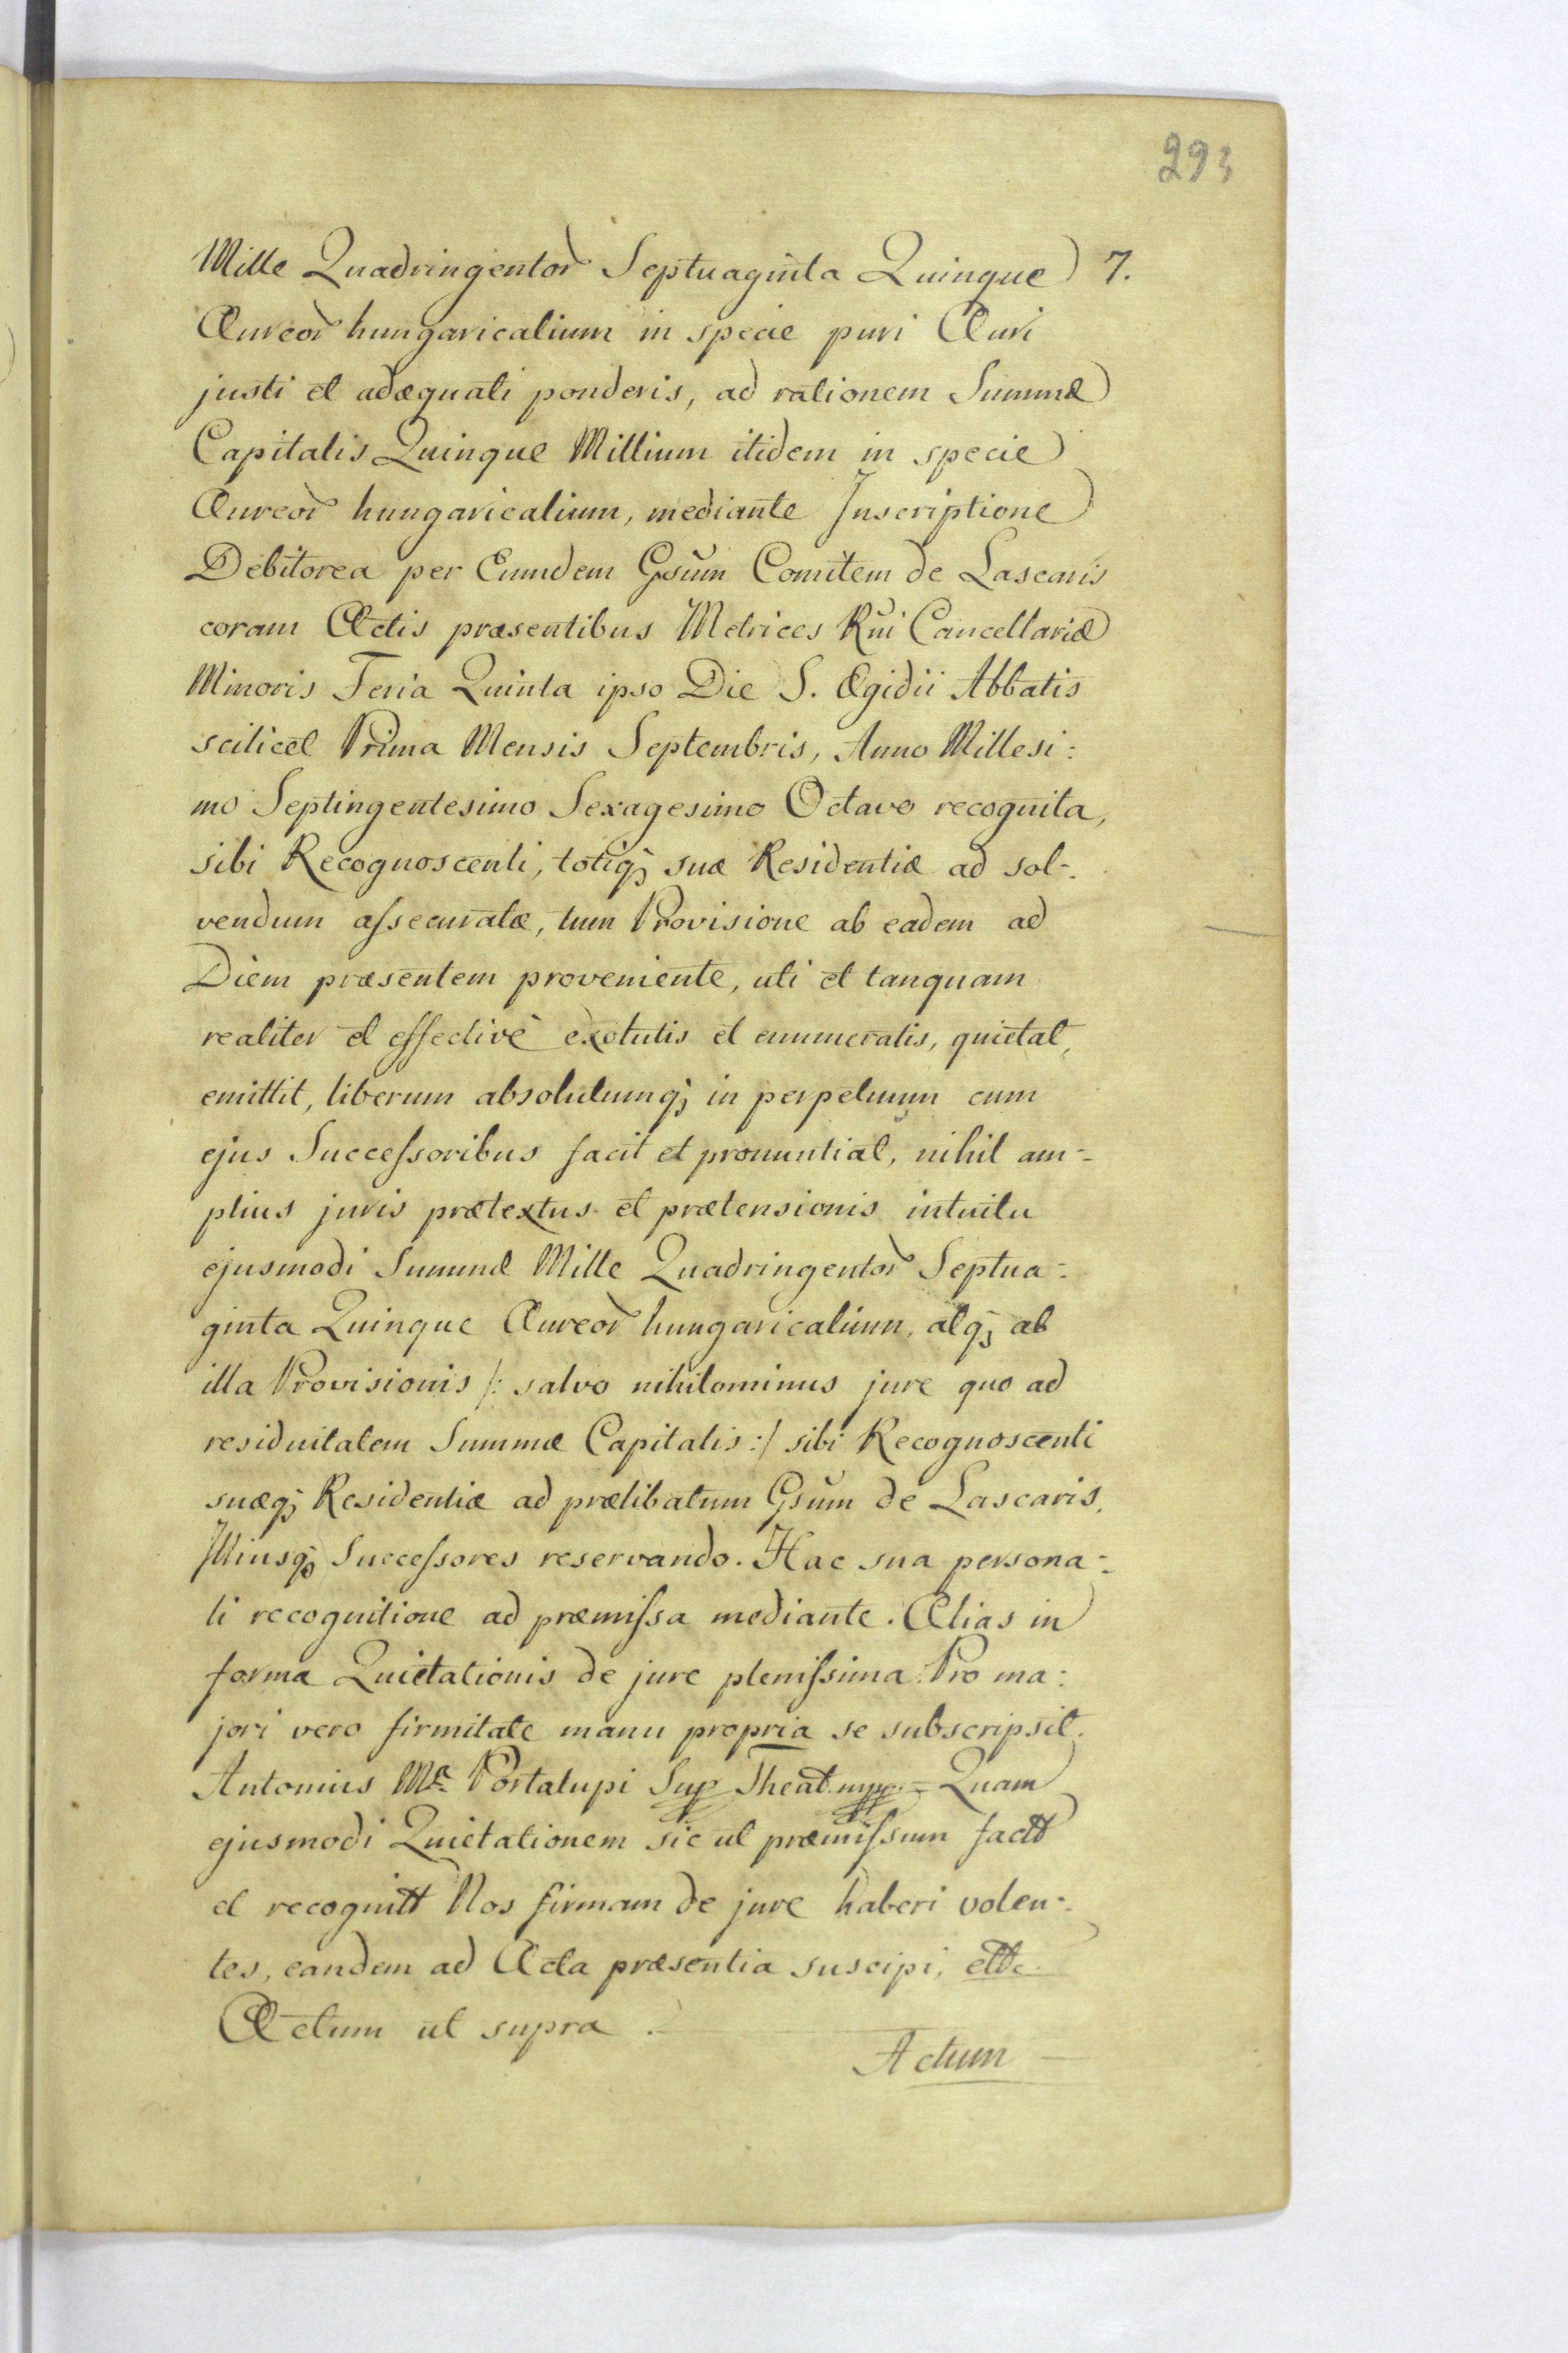 293
Mille Quadringentor Septuaginta Quinque 7.
Aureor hungaricalium in specie puri Auri
justi et adæquati ponderis, ad rationem Summæ
Capitalis Quinque Millium itidem in specie
Aureor hungaricalium, mediante Inscriptione
Debitorea per Eumdem Gsum Comitem de Lascaris
coram Actis præsentibus Metrices Rni Cancellariæ
Minoris Feria Quinta ipso Die S. Ægidii Abbatis
scilicet Prima Mensis Septembris, Anno Millesi:
mo Septingentesimo Sexagesimo Octavo recognita,
sibi Recognoscenti, totiq; suæ Residentiæ ad sol-
vendum aſsecuratæ, tum Provisione ab eadem ad
Diem præsentem proveniente, uti et tanquam
realiter et effectivè exolutis et enumeratis, quietat,
emittit, liberum absolutumq; in perpetuum cum
ejus Succeſsoribus facit et pronuntiat, nihil am-
plius juris prætextus et prætensionis intuitu
ejusmodi Summæ Mille Quadringentor Septua-
ginta Quinque Aureor hungaricalium, atq; ab
illa Provisionis /: salvo nihilominus jure quo ad
residuitatem Summæ Capitalis :/ sibi Recognoscenti
suæq; Residentiæ ad prælibatum Gsum de Lascaris,
Illiusq; Succeſsores reservando. Hac sua persona-
li recognitione ad præmiſsa mediante. Alias in
forma Quietationis de jure pleniſsima. Pro ma:
jori vero firmitate manu propria se subscripsit.
Antonius Ma Portalupi Sup Theat. mpp = Quam
ejusmodi Quietationem sic ut præmiſsum factt
et recognitt Nos firmam de jure haberi volen-
tes, eandem ad Acta præsentia suscipi, ettc.
Actum ut supra.
Actum